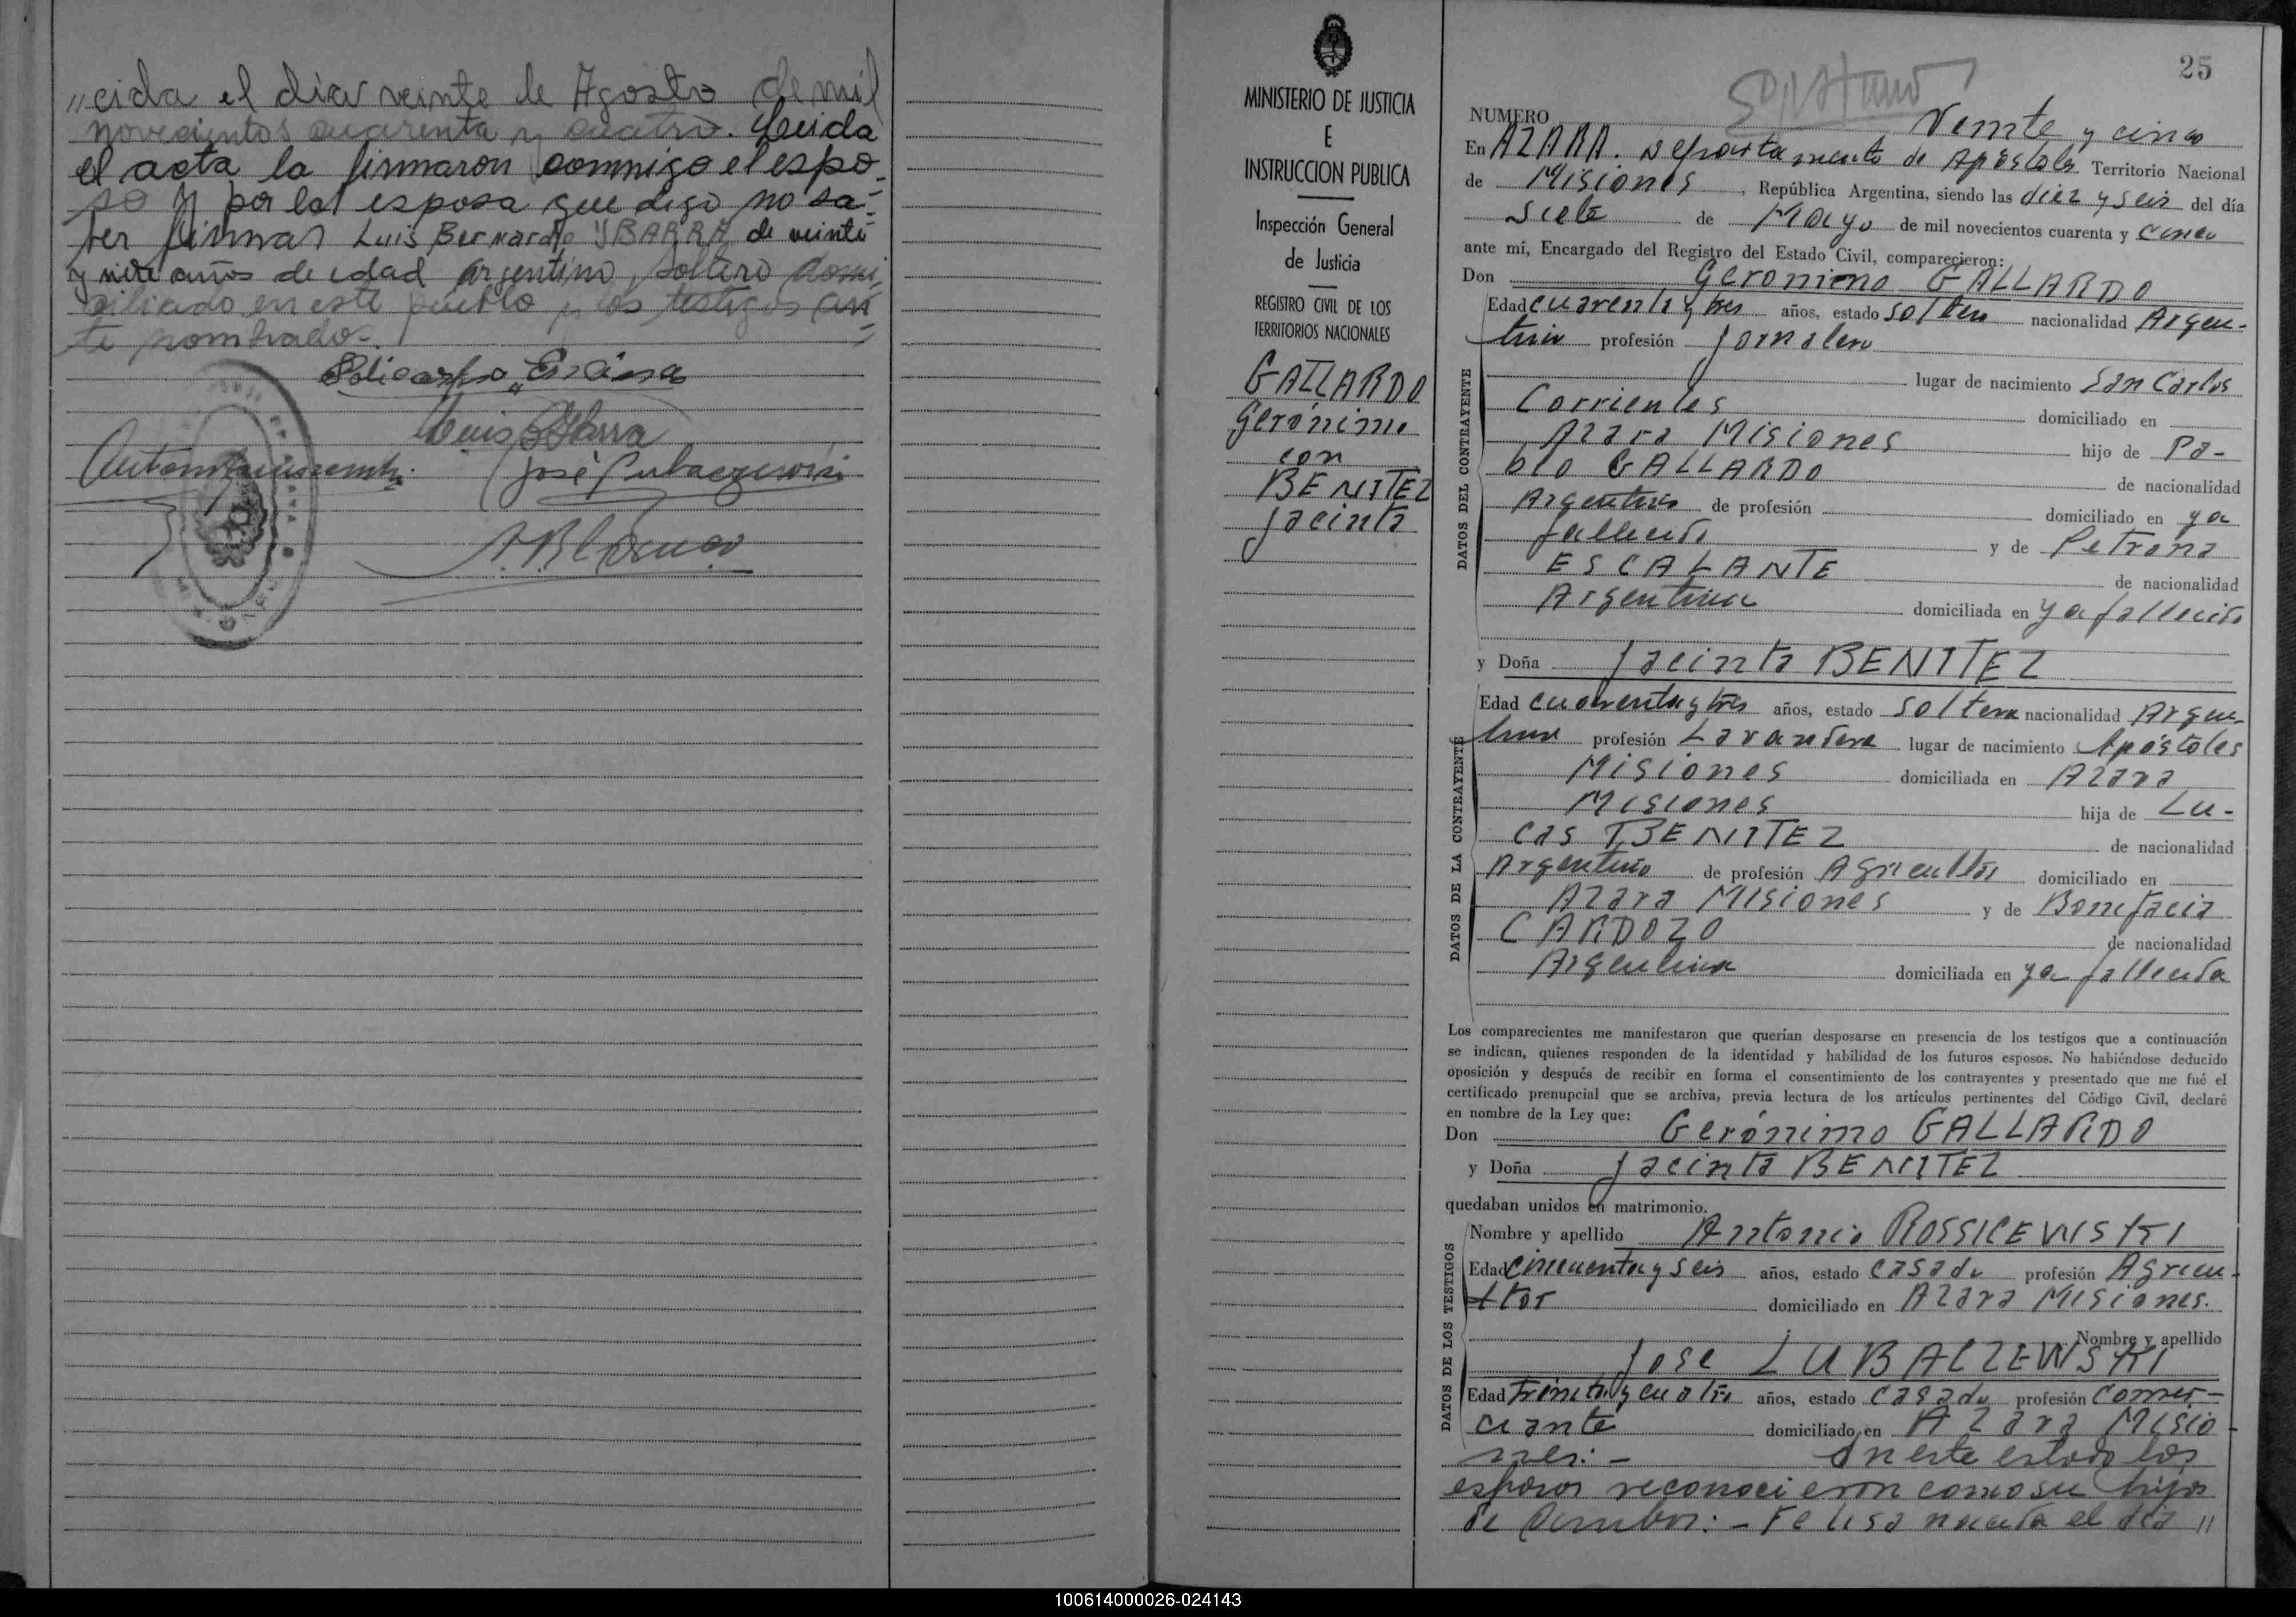 "cida el dia veinte de Agosto de mil
novecientos cuarenta y cuatro. Leida
el acta la firmaron conmigo el espo-
so y por la esposa que digo no sa-
ber firmar Luis Bernardo YBARRA de veinti
y siete años de edad argentino, soltero domi-
ciliado en este pueblo y los testigos an-
te nombrados.
Policarpo
Luis Ybarra
José
A. Blanco
MINISTERIO DE JUSTICIA
E
INSTRUCCION PUBLICA
Inspección General
de Justicia
REGISTRO CIVIL DE LOS
TERRITORIOS NACIONALES
GALLARDO
Gerónimo
con
BENITEZ
Jacinta
25
NUMERO Veinte y cinco
En AZARA. Departamento de Apóstoles Territorio Nacional
de Misiones, República Argentina, siendo las diez y seis del día
Siete de Mayo de mil novecientos cuarenta y cinco
ante mí, Encargado del Registro del Estado Civil, comparecieron:
Don Geronimo GALLARDO
DATOS DEL CONTRAYENTE
Edad cuarenta y tres años, estado soltero nacionalidad Argen-
tino profesión Jornalero
lugar de nacimiento San Carlos
Corrientes domiciliado en
Azara Misiones hijo de Pa-
blo GALLARDO de nacionalidad
Argentino de profesión domiciliado en ya
fallecido y de Petrona
ESCALANTE de nacionalidad
Argentina domiciliada en ya fallecida
y Doña Jacinta BENITEZ
DATOS DE LA CONTRAYENTE
Edad cuarenta y tres años, estado soltera nacionalidad Argen-
tina profesión Lavandera lugar de nacimiento Apóstoles
Misiones domiciliada en Azara
Misiones hija de Lu-
cas BENITEZ de nacionalidad
Argentino de profesión Agricultor domiciliado en
Azara Misiones y de Bonifacia
CARDOZO de nacionalidad
Argentina domiciliada en ya fallecida
Los comparecientes me manifestaron que querían desposarse en presencia de los testigos que a continuación
se indican, quienes responden de la identidad y habilidad de los futuros esposos. No habiéndose deducido
oposición y después de recibir en forma el consentimiento de los contrayentes y presentado que me fué el
certificado prenupcial que se archiva, previa lectura de los artículos pertinentes del Código Civil, declaré
en nombre de la Ley que:
Don Gerónimo GALLARDO
y Doña Jacinta BENITEZ
quedaban unidos en matrimonio.
DATOS DE LOS TESTIGOS
Nombre y apellido Antonio ROSSICEWSKI
Edad cincuenta y seis años, estado casado profesión Agricu-
ltor domiciliado en Azara Misiones.
Nombre y apellido
Jose LUBACZEWSKI
Edad treinta y cuatro años, estado casado profesión Comer-
ciante domiciliado en Azara Misio-
nes:- En este estado los
esposos reconocieron como su hijos
de ambos:- Felisa nacida el día "
100614000026-024143